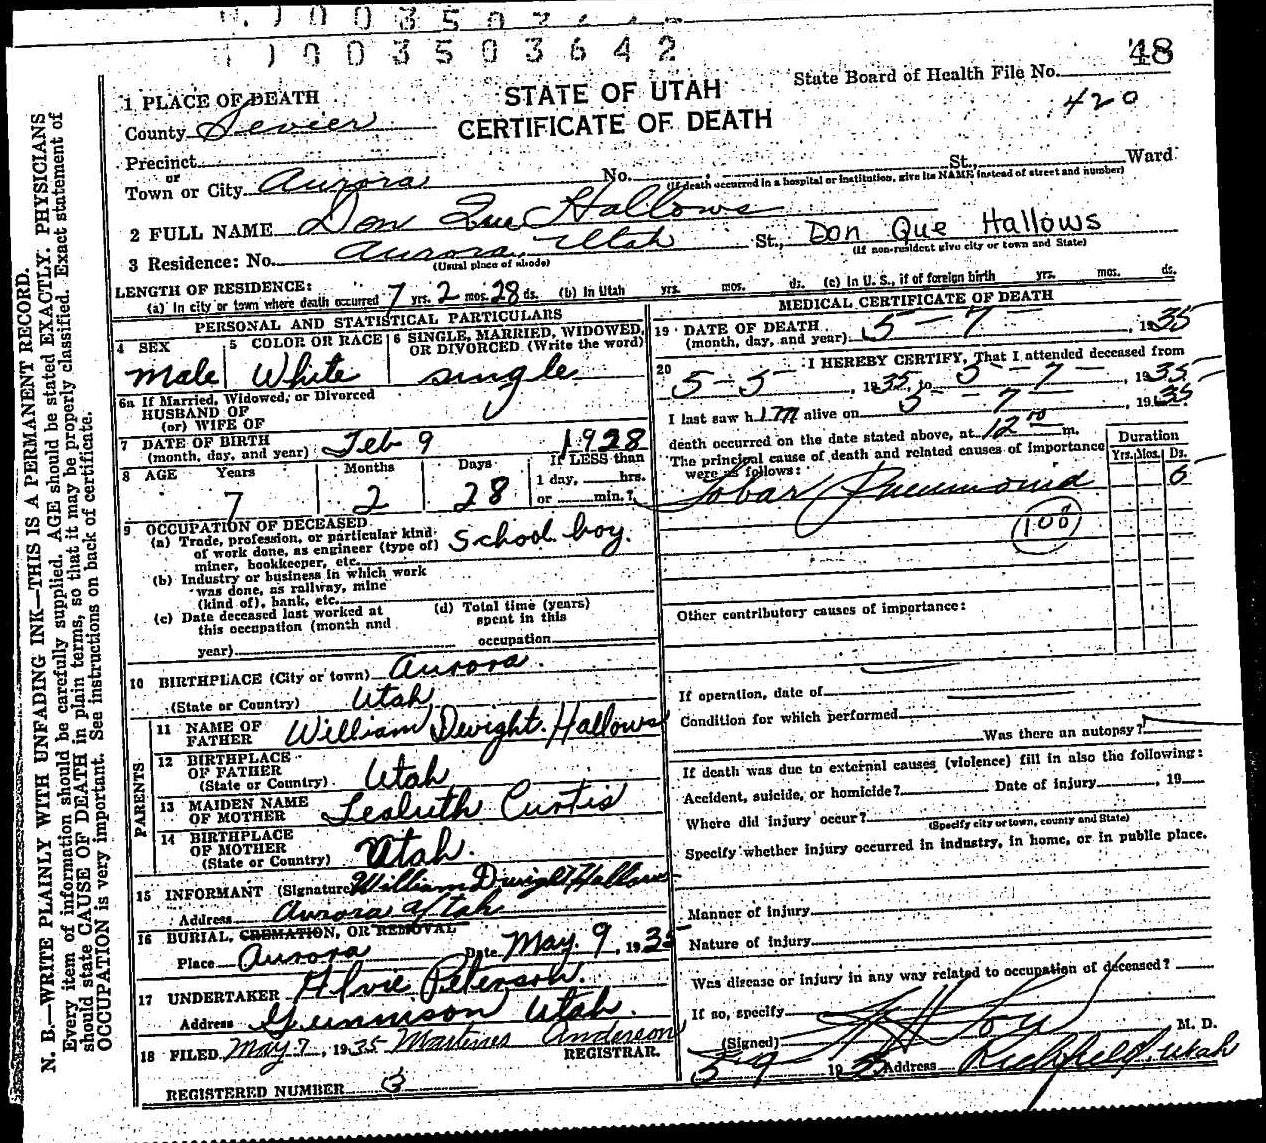 1003503642
48
State Board of Health File No.
420
STATE OF UTAH
CERTIFICATE OF DEATH
1 PLACE OF DEATH
County Sevier
Precinct
or
Town or City Aurora No. St., Ward
(If death occurred in a hospital or institution, give its NAME instead of street and number)
2 FULL NAME Don Que Hallows
Don Que Hallows
3 Residence: No. Aurora, Utah St.,
(Usual place of abode) (If non-resident give city or town and State)
LENGTH OF RESIDENCE:
(a) In city or town where death occurred 7 yrs. 2 mos. 28 ds. (b) In Utah yrs. mos. ds. (c) In U. S., if of foreign birth yrs. mos. ds.
PERSONAL AND STATISTICAL PARTICULARS
4 SEX Male
5 COLOR OR RACE White
6 SINGLE, MARRIED, WIDOWED, OR DIVORCED (Write the word) single
6a If Married, Widowed, or Divorced
HUSBAND OF
(or) WIFE OF
7 DATE OF BIRTH
(month, day, and year) Feb 9 1928
8 AGE Years 7 Months 2 Days 28
If LESS than
1 day, hrs.
or min.?
9 OCCUPATION OF DECEASED
(a) Trade, profession, or particular kind
of work done, as engineer (type of)
miner, bookkeeper, etc. School boy.
(b) Industry or business in which work
was done, as railway, mine
(kind of), bank, etc.
(c) Date deceased last worked at
this occupation (month and
year)
(d) Total time (years)
spent in this
occupation
10 BIRTHPLACE (City or town) Aurora.
(State or Country) Utah
PARENTS
11 NAME OF
FATHER William Dwight Hallows
12 BIRTHPLACE
OF FATHER
(State or Country) Utah
13 MAIDEN NAME
OF MOTHER Curtis
14 BIRTHPLACE
OF MOTHER
(State or Country) Utah.
15 INFORMANT (Signature) William Dwight Hallows
Address Aurora Utah
16 BURIAL, CREMATION, OR REMOVAL
Place Aurora Date May. 9, 1935
17 UNDERTAKER Peterson.
Address Gunnison Utah.
18 FILED May 7, 1935 Anderson
REGISTRAR.
REGISTERED NUMBER 3
MEDICAL CERTIFICATE OF DEATH
19 DATE OF DEATH
(month, day, and year) 5-7-, 1935
20 I HEREBY CERTIFY, That I attended deceased from
5-5, 1935, to 5-7-, 1935
I last saw him alive on 5-7-, 1935.
death occurred on the date stated above, at 12 m.
The principal cause of death and related causes of importance
were as follows:
Duration
Yrs. Mos. Ds.
Lobar Pneumonia 6
108
Other contributory causes of importance:
If operation, date of
Condition for which performed
Was there an autopsy?
If death was due to external causes (violence) fill in also the following:
Accident, suicide, or homicide? Date of injury , 19
Where did injury occur?
(Specify city or town, county and State)
Specify whether injury occurred in industry, in home, or in public place.
Manner of injury
Nature of injury
Was disease or injury in any way related to occupation of deceased?
If so, specify
(Signed) M. D.
5-9 1935 Address Richfield, Utah
N. B.—WRITE PLAINLY WITH UNFADING INK—THIS IS A PERMANENT RECORD.
Every item of information should be carefully supplied. AGE should be stated EXACTLY. PHYSICIANS
should state CAUSE OF DEATH in plain terms, so that it may be properly classified. Exact statement of
OCCUPATION is very important. See instructions on back of certificate.